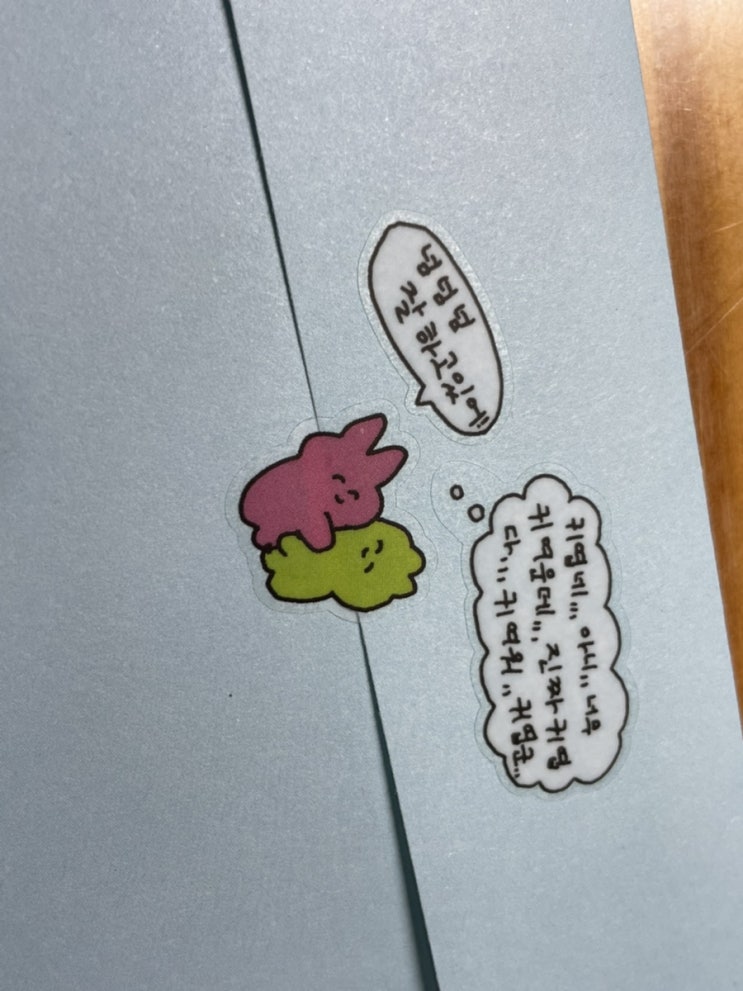 넘 넘 넘
잘 하고있어!!
귀엽네,,, 아니,, 너무
귀여운데,,, 진짜 귀엽
다,,, 귀여워,, 귀엽군,,